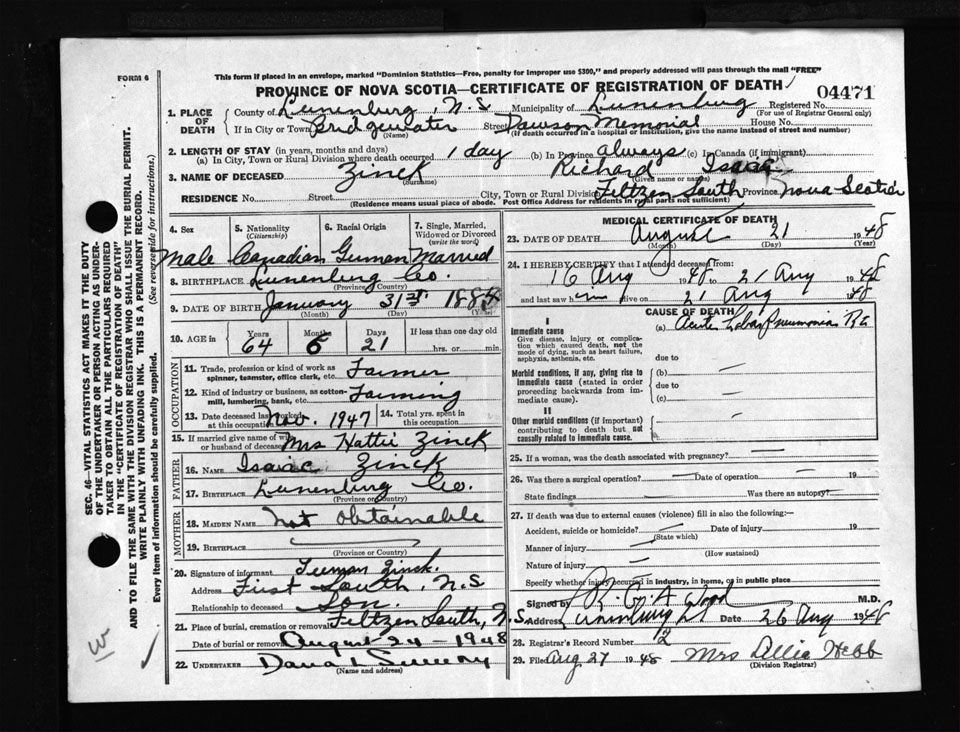 FORM 6
This form if placed in an envelope, marked "Dominion Statistics—Free, penalty for improper use $300," and properly addressed will pass through the mail "FREE"
PROVINCE OF NOVA SCOTIA—CERTIFICATE OF REGISTRATION OF DEATH
04471
1. PLACE OF DEATH
County of Lunenburg, N.S Municipality of Lunenburg Registered No.
(For use of Registrar General only)
If in City or Town Bridgewater Street Dawson Memorial House No.
(Name) (If death occurred in a hospital or institution, give the name instead of street and number)
2. LENGTH OF STAY (in years, months and days)
(a) In City, Town or Rural Division where death occurred 1 day (b) In Province always (c) In Canada (if immigrant)
3. NAME OF DECEASED Zinck Richard Isaac
(Surname) (Given name or names)
RESIDENCE No. Street City, Town or Rural Division Feltzen South Province Nova Scotia
(Residence means usual place of abode. Post Office Address for residents in rural parts not sufficient)
4. Sex 5. Nationality (Citizenship) 6. Racial Origin 7. Single, Married, Widowed or Divorced (write the word)
Male Canadian German Married
8. BIRTHPLACE Lunenburg Co.
(Province or Country)
9. DATE OF BIRTH January 31st 1884
(Month) (Day) (Year)
10. AGE in Years Months Days If less than one day old
64 6 21 hrs. or min.
OCCUPATION
11. Trade, profession or kind of work as spinner, teamster, office clerk, etc. Farmer
12. Kind of industry or business, as cotton-mill, lumbering, bank, etc. Farming
13. Date deceased last worked at this occupation Nov. 1947 14. Total yrs. spent in this occupation
15. If married give name of wife or husband of deceased Mrs Hattie Zinck
FATHER
16. NAME Isaac Zinck
17. BIRTHPLACE Lunenburg Co.
(Province or Country)
MOTHER
18. MAIDEN NAME Not Obtainable
19. BIRTHPLACE
(Province or Country)
20. Signature of informant Truman Zinck.
Address First South, N.S
Relationship to deceased Son.
21. Place of burial, cremation or removal Feltzen South, N.S.
Date of burial or removal August 24 - 1948
22. UNDERTAKER Dana L Sweeny
(Name and address)
MEDICAL CERTIFICATE OF DEATH
23. DATE OF DEATH August 21 1948
(Month) (Day) (Year)
24. I HEREBY CERTIFY that I attended deceased from:
16 Aug 1948 to 21 Aug 1948
and last saw him alive on 21 Aug 48
CAUSE OF DEATH
I
Immediate cause
Give disease, injury or complication which caused death, not the mode of dying, such as heart failure, asphyxia, asthenia, etc.
(a) Acute Lobar Pneumonia
due to
Morbid conditions, if any, giving rise to immediate cause (stated in order proceeding backwards from immediate cause).
(b)
due to
(c)
II
Other morbid conditions (if important) contributing to death but not causally related to immediate cause.
25. If a woman, was the death associated with pregnancy?
26. Was there a surgical operation? Date of operation 19
State findings Was there an autopsy?
27. If death was due to external causes (violence) fill in also the following:—
Accident, suicide or homicide? Date of injury 19
(State which)
Manner of injury
(How sustained)
Nature of injury
Specify whether injury occurred in industry, in home, or in public place
Signed by R. G. A Wood M.D.
Address Lunenburg Date 26 Aug 1948
28. Registrar's Record Number 12
29. Filed Aug 27 1948 Mrs Allie Hebb
(Division Registrar)
SEC. 46—VITAL STATISTICS ACT MAKES IT THE DUTY
OF THE UNDERTAKER OR PERSON ACTING AS UNDER-
TAKER TO OBTAIN ALL THE PARTICULARS REQUIRED
IN THE "CERTIFICATE OF REGISTRATION OF DEATH"
AND TO FILE THE SAME WITH THE DIVISION REGISTRAR WHO SHALL ISSUE THE BURIAL PERMIT.
WRITE PLAINLY WITH UNFADING INK. THIS IS A PERMANENT RECORD.
Every item of Information should be carefully supplied. (See reverse side for instructions).
W